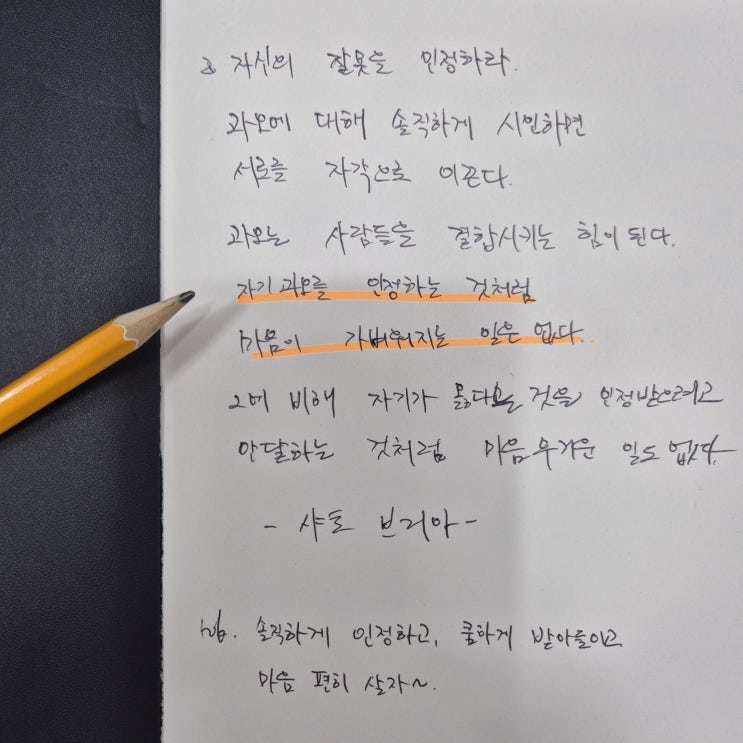 자신의 잘못을 인정하라.
과오에 대해 솔직하게 시인하면
서로를 자각으로 이끈다.
과오는 사람들을 결합시키는 힘이 된다.
자기 과오를 인정하는 것처럼
마음이 가벼워지는 일은 없다.
그에 비해 자기가 옳다는 것을 인정받으려고
안달하는 것처럼 마음 무거운 일도 없다.
- 샤토 브리아 -
솔직하게 인정하고, 쿨하게 받아들이고
마음 편히 살자~.